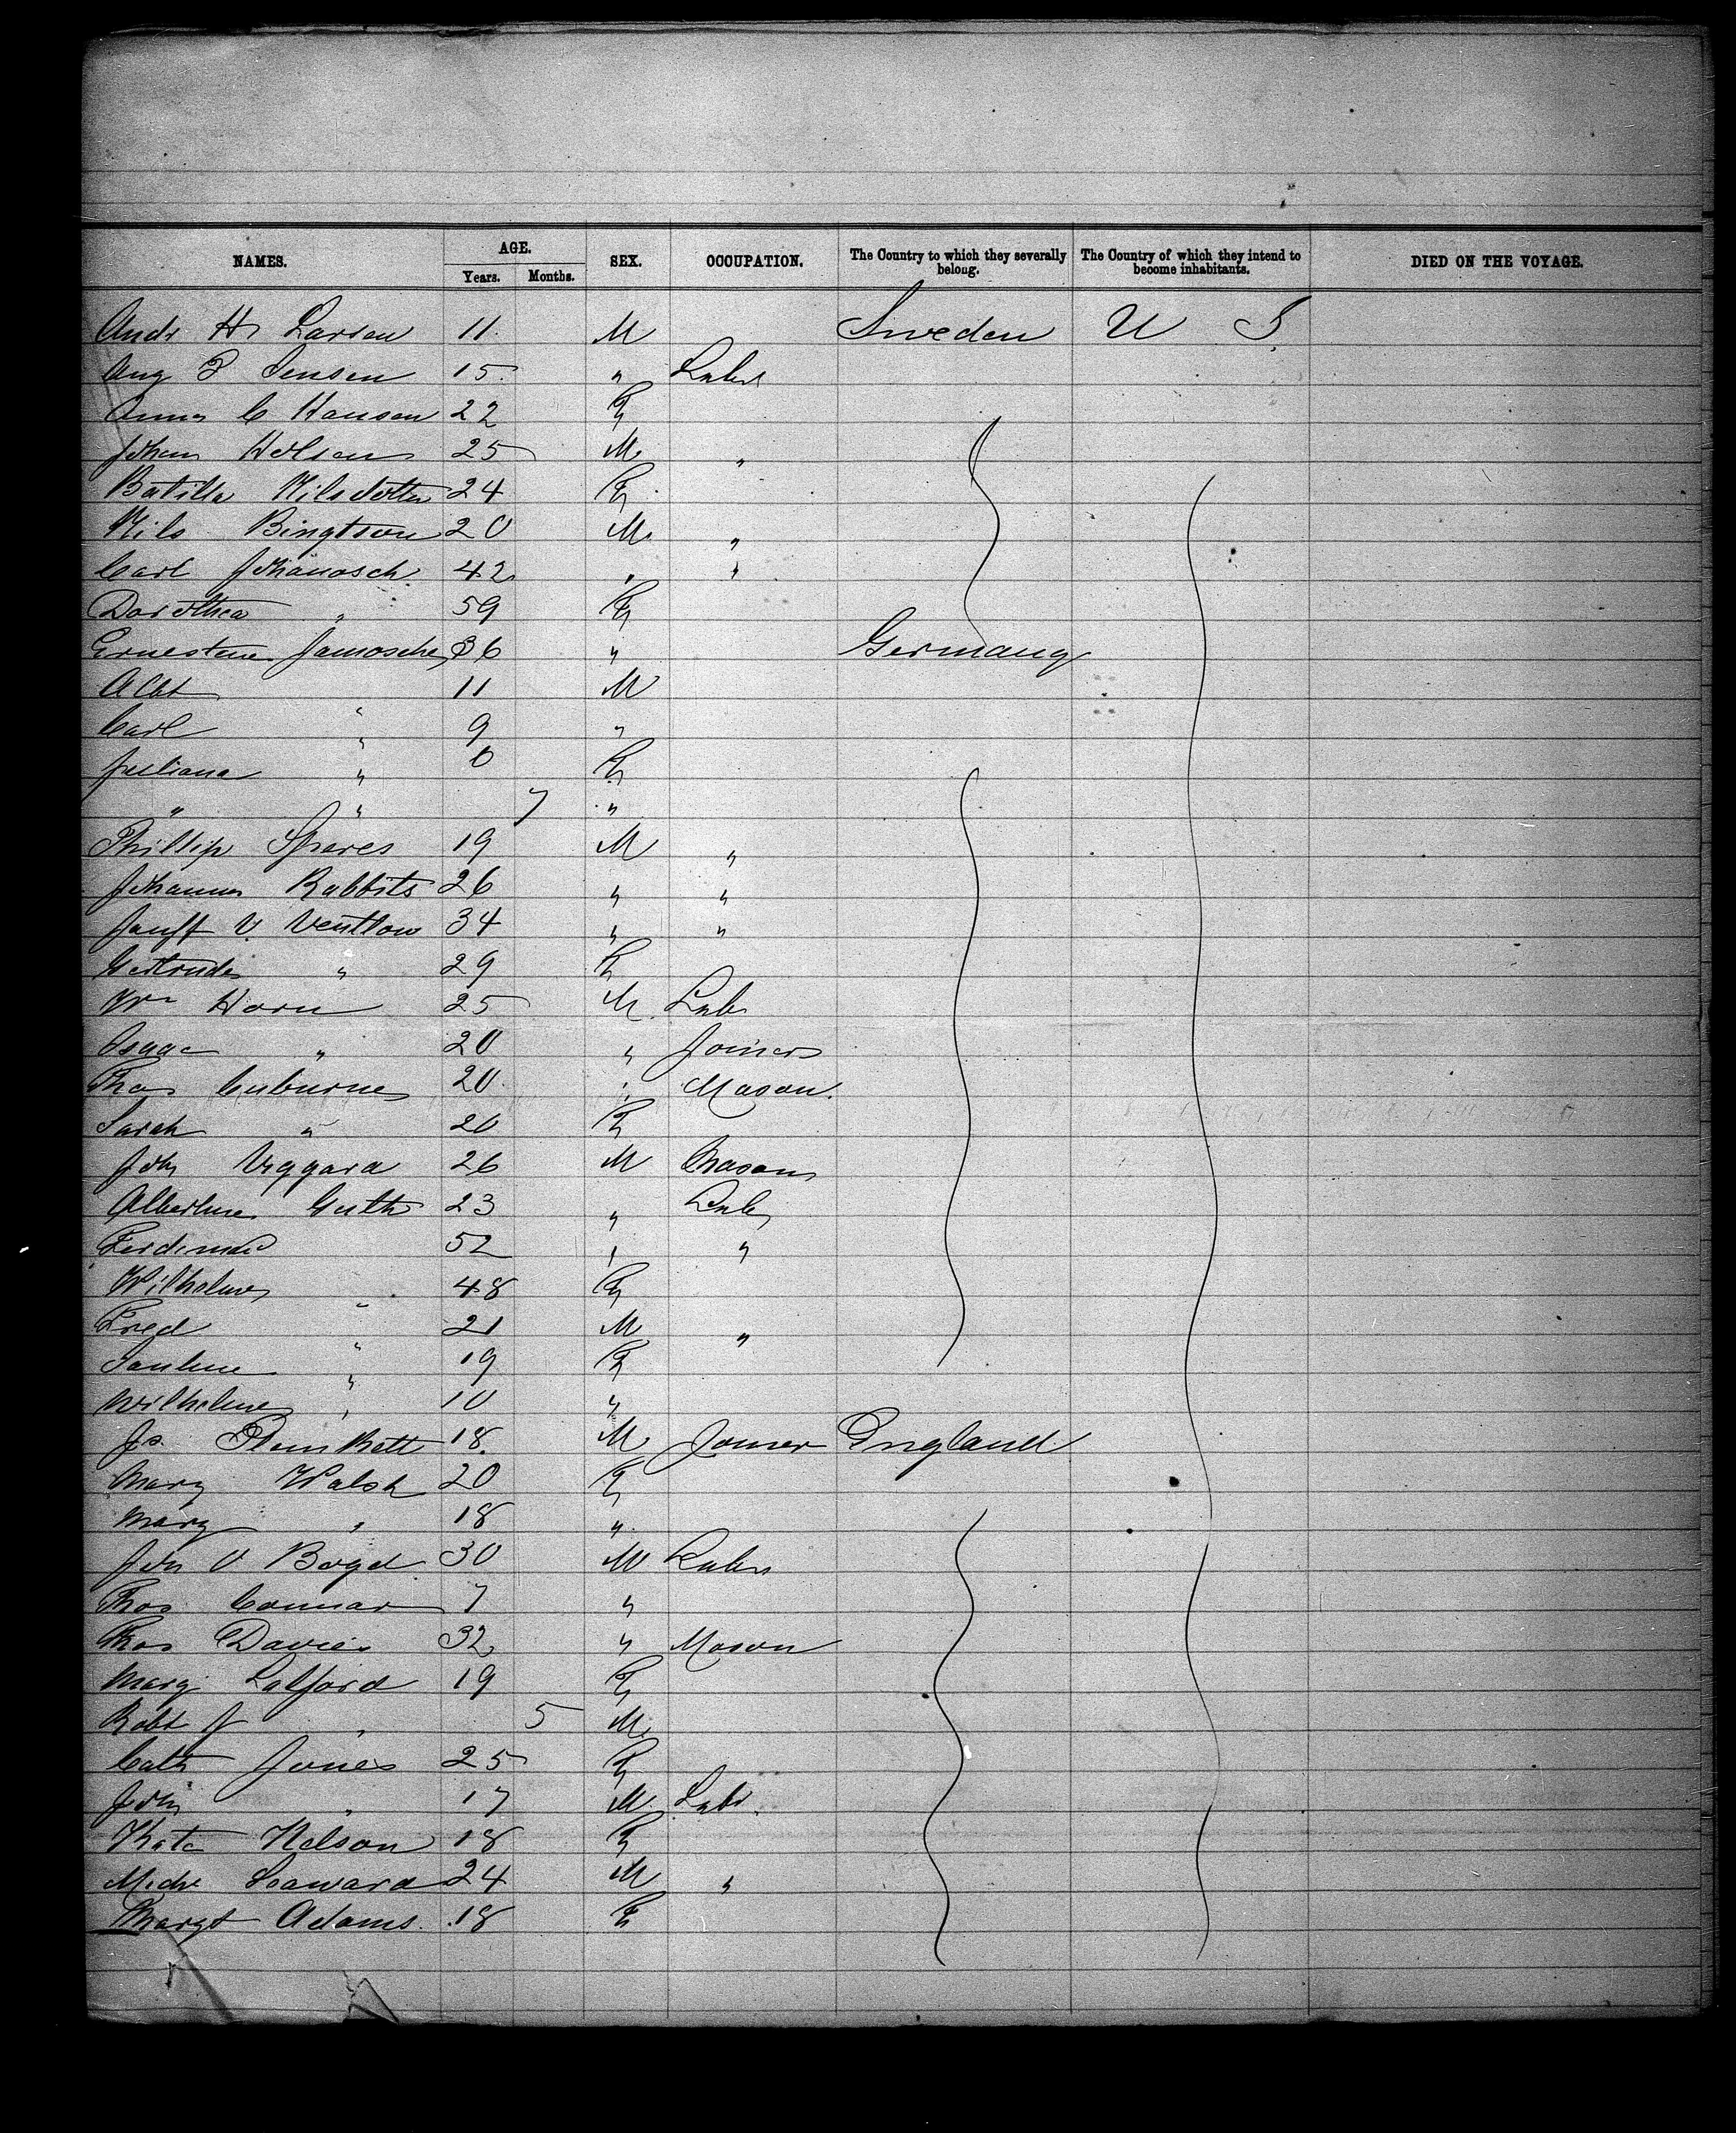 NAMES. AGE. Years. Months. SEX. OCCUPATION. The Country to which they severally belong. The Country of which they intend to become inhabitants. DIED ON THE VOYAGE.
Andr H Larsen 11 M Sweden U S
Aug P Jensen 15 " Labr
Anna C Hansen 22 F
Johan Nelson 25 M "
Batilla Nilsdotter 24 F
Nils Bingtson 20 M "
Carl Johanosch 42 " "
Dorothea " 59 F
Ernestine Janosche 36 " Germany
Albt " 11 M
Carl " 9 "
Juliana " 6 F
" " 7 "
Phillip Speres 19 M "
Johannes Rabbits 26 " "
V. Ventlow 34 " "
Gertrude " 29 F
Wm Horn 25 M Labr
Isaac " 20 " Joiner
Thos Cuburne 20 " Mason.
Sarah " 20 F
John Viggara 26 M Mason
Albertine Guth 23 " Labr
Ferdinand 52 " "
Wilhelme " 48 F
Fred " 21 M "
Pauline " 19 F
Wilhelme " 10 "
Js. Plunkett 18 M Joiner England
Mary Walsh 20 F
Mary " 18 "
Jon O Boyd 30 M Labr
Thos Connar 7 "
Thos Davies 32 " Mason
Mary Latford 19 F
Robt J " 5 M
Cath Jones 25 F
John " 17 M Labr
Kate Nelson 18 F
Michl Seaward 24 M "
Margt Adams. 18 F